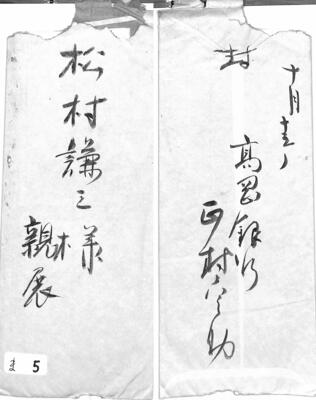 松村謙三様
親展
ま 5
封
十月十三日
高岡銀行
正村六之助